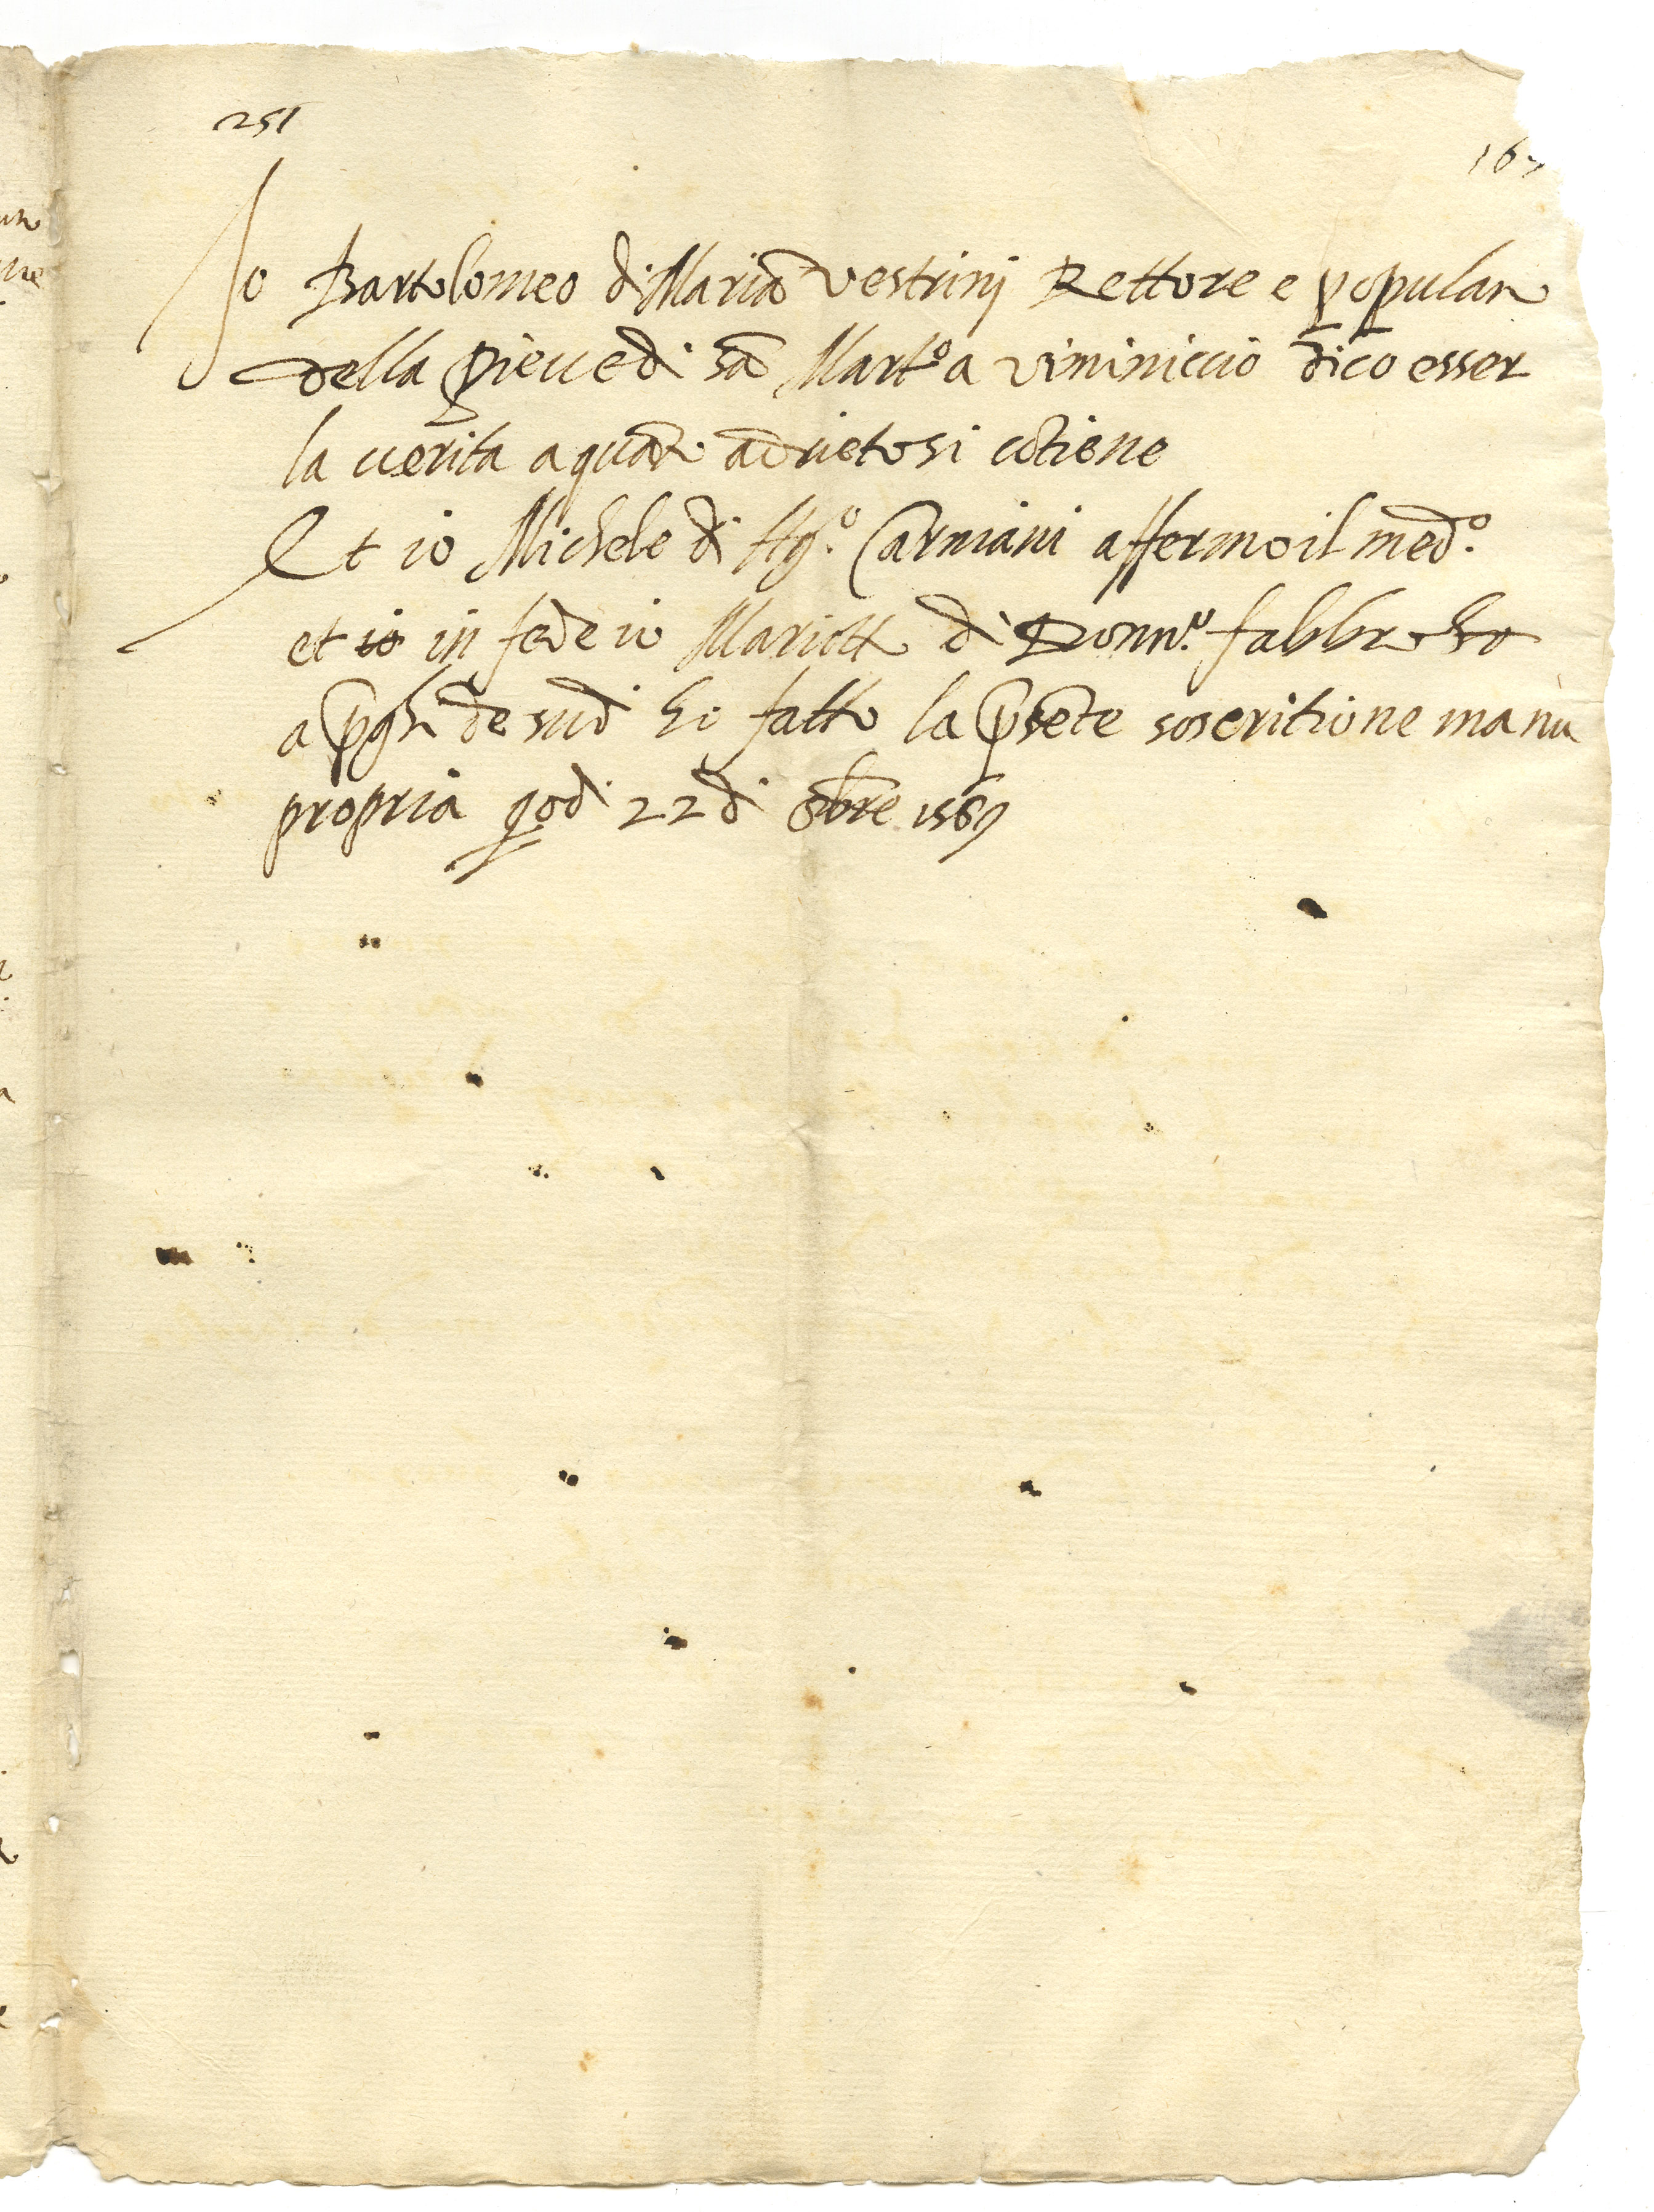 251
167
Io Bartolomeo di Maria Vestrini Rettore e popular
della pieve di sã Mart.º a viminiccio dico esser
la uerita a quãto adrieto si cõtiene
Et io Michele di Ag.º Carniani affermo il med.º
et io in fede io Mariotto di Dom.º fabbr ho
a pghi de sud ho fatto la psẽte soscritione manu
propria qo dì 22 di 8bre 1569